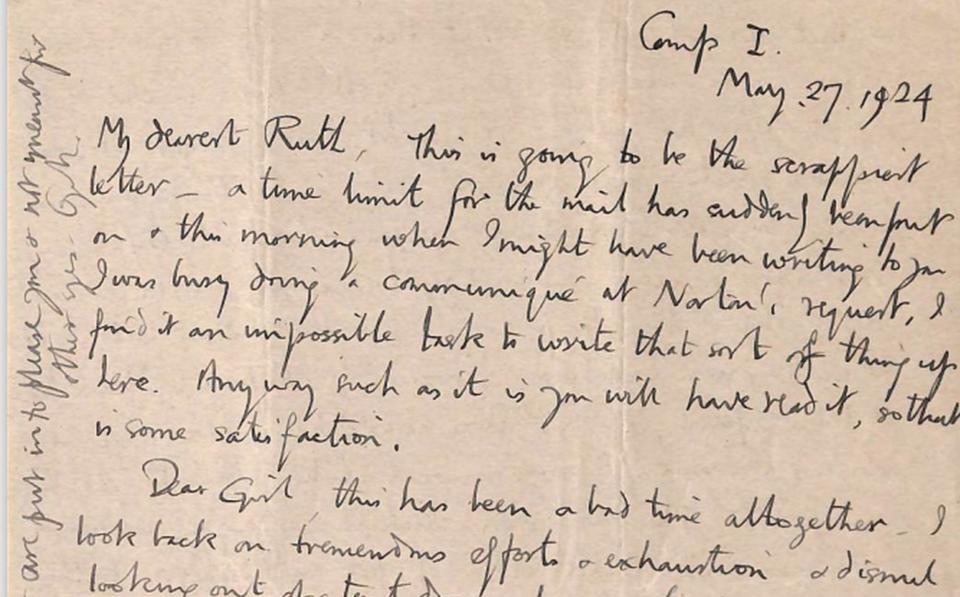 Camp I.
May.27.1924
My dearest Ruth, This is going to be the scrappiest
letter – a time limit for the mail has suddenly been put
on & this morning when I might have been writing to you
I was busy doing a communiqué at Norton's request, I
find it an impossible task to write that sort of thing up
here. Anyway such as it is you will have read it, so that
is some satisfaction.
Dear Girl, this has been a bad time altogether – I
look back on tremendous efforts & exhaustion & dismal
looking out of a tent d
are put in to please you & not meant for
other eyes. G.L.M.